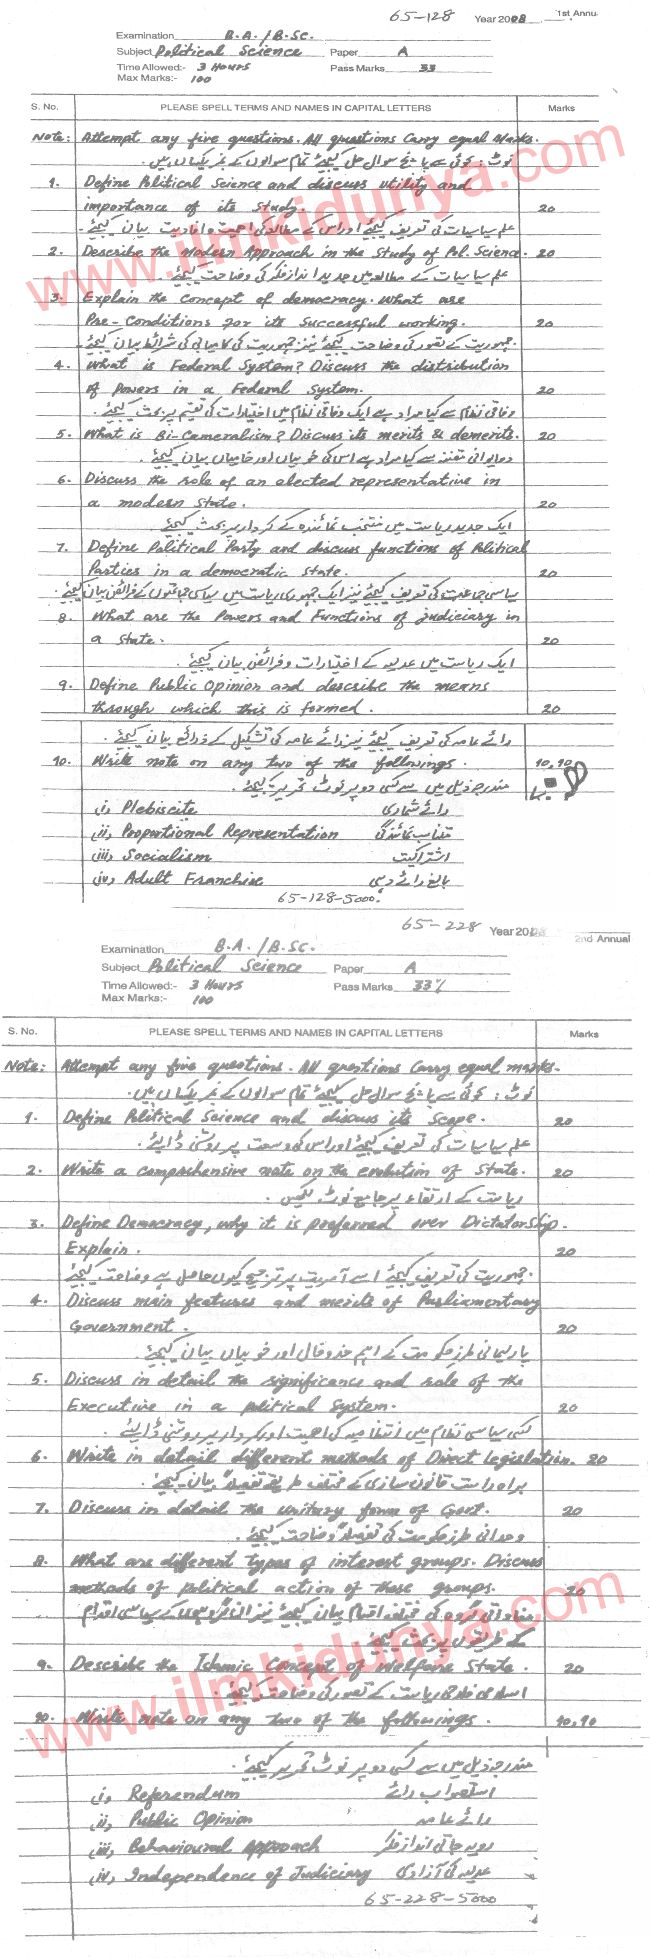 65-128 Year 2008 1st Annu
Examination B.A./B.Sc.
Subject Political Science Paper A
Time Allowed:- 3 Hours Pass Marks 33
Max Marks:- 100
S. No. PLEASE SPELL TERMS AND NAMES IN CAPITAL LETTERS Marks
Note: Attempt any five questions. All questions Carry equal Marks.
نوٹ: کوئی سے پانچ سوال حل کیجئے تمام سوالوں کے نمبر یکساں ہیں۔
1. Define Political Science and discuss utility and
importance of its Study. 20
علم سیاسیات کی تعریف کیجئے اور اس کے مطالعہ کی اہمیت و افادیت بیان کیجئے۔
2. Describe the Modern Approach in the Study of Pol. Science. 20
علم سیاسیات کے مطالعہ میں جدید اندازِ فکر کی وضاحت کیجئے۔
3. Explain the Concept of democracy. What are
Pre-Conditions for its Successful working. 20
جمہوریت کے تصور کی وضاحت کیجئے نیز جمہوریت کی کامیابی کی شرائط بیان کیجئے۔
4. What is Federal System? Discuss the distribution
of Powers in a Federal System. 20
وفاقی نظام سے کیا مراد ہے ایک وفاقی نظام میں اختیارات کی تقسیم پر بحث کیجئے۔
5. What is Bi-Cameralism? Discuss its merits & demerits. 20
دو ایوانی مقننہ سے کیا مراد ہے اس کی خوبیاں اور خامیاں بیان کیجئے۔
6. Discuss the role of an elected representative in
a modern State. 20
ایک جدید ریاست میں منتخب نمائندہ کے کردار پر بحث کیجئے۔
7. Define Political Party and discuss functions of Political
Parties in a democratic State. 20
سیاسی جماعت کی تعریف کیجئے نیز ایک جمہوری ریاست میں سیاسی جماعتوں کے فرائض بیان کیجئے۔
8. What are the Powers and Functions of judiciary in
a State. 20
ایک ریاست میں عدلیہ کے اختیارات و فرائض بیان کیجئے۔
9. Define Public Opinion and describe the means
through which this is formed. 20
رائے عامہ کی تعریف کیجئے نیز رائے عامہ کی تشکیل کے ذرائع بیان کیجئے۔
10. Write note on any two of the followings. 10,10
مندرجہ ذیل میں سے کسی دو پر نوٹ تحریر کیجئے۔
(i) Plebiscite رائے شماری
(ii) Proportional Representation متناسب نمائندگی
(iii) Socialism اشتراکیت
(iv) Adult Franchise بالغ رائے دہی
65-128-5000.
65-228 Year 2008 2nd Annual
Examination B.A./B.Sc.
Subject Political Science Paper A
Time Allowed:- 3 Hours Pass Marks 33%
Max Marks:- 100
S. No. PLEASE SPELL TERMS AND NAMES IN CAPITAL LETTERS Marks
Note: Attempt any five questions. All questions Carry equal marks.
نوٹ: کوئی سے پانچ سوال حل کیجئے تمام سوالوں کے نمبر یکساں ہیں۔
1. Define Political Science and discuss its Scope. 20
علم سیاسیات کی تعریف کیجئے اور اس کی وسعت پر روشنی ڈالئے۔
2. Write a comprehensive note on the evolution of State. 20
ریاست کے ارتقاء پر جامع نوٹ لکھیں۔
3. Define Democracy, why it is preferred over Dictatorship.
Explain. 20
جمہوریت کی تعریف کیجئے اسے آمریت پر ترجیح کیوں حاصل ہے وضاحت کیجئے۔
4. Discuss main features and merits of Parliamentary
Government. 20
پارلیمانی طرز حکومت کے اہم خدوخال اور خوبیاں بیان کیجئے۔
5. Discuss in detail the significance and role of the
Executive in a political System. 20
کسی سیاسی نظام میں انتظامیہ کی اہمیت اور کردار پر روشنی ڈالئے۔
6. Write in detail different methods of Direct legislation. 20
براہ راست قانون سازی کے مختلف طریقے تفصیلاً بیان کیجئے۔
7. Discuss in detail the unitary form of Govt. 20
وحدانی طرز حکومت کی تفصیلاً وضاحت کیجئے۔
8. What are different types of interest groups. Discuss
methods of political action of these groups. 20
مفاداتی گروہ کی مختلف اقسام بیان کیجئے نیز ان گروہوں کے سیاسی اقدام
کے طریقوں پر بحث کیجئے
9. Describe the Islamic Concept of Welfare State. 20
اسلامی فلاحی ریاست کے تصور کی وضاحت کیجئے۔
10. Write note on any two of the followings. 10,10
مندرجہ ذیل میں سے کسی دو پر نوٹ تحریر کیجئے۔
(i) Referendum استصواب رائے
(ii) Public Opinion رائے عامہ
(iii) Behavioural Approach رویہ جاتی انداز فکر
(iv) Independence of Judiciary عدلیہ کی آزادی
65-228-5000
www.ilmkidunya.com
www.ilmkidunya.com